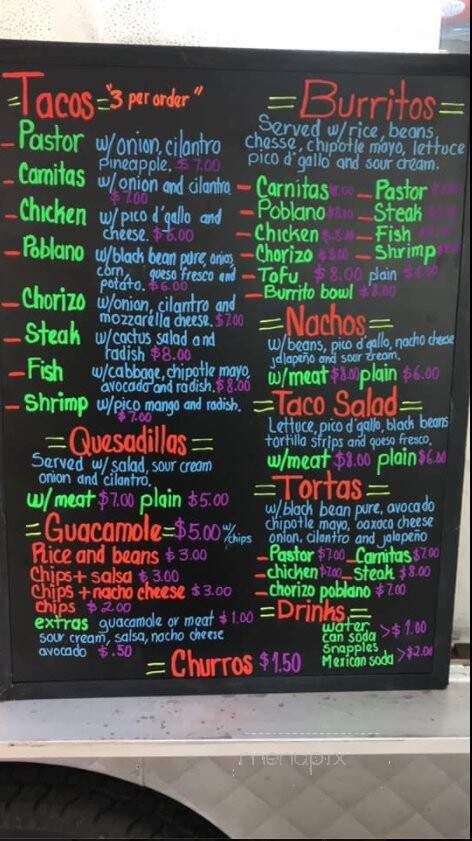 =Tacos= "3 per order"
- Pastor w/onion, cilantro
pineapple. $7.00
- Carnitas w/onion and cilantro
$7.00
- Chicken w/pico d'gallo and
cheese. $6.00
- Poblano w/black bean pure, onion,
corn, queso fresco and
potato. $6.00
- Chorizo w/onion, cilantro and
mozzarella cheese. $7.00
- Steak w/cactus salad and
radish $8.00
- Fish w/cabbage, chipotle mayo,
avocado and radish. $8.00
- Shrimp w/pico mango and radish.
$7.00
=Quesadillas=
Served w/salad, sour cream
onion and cilantro.
w/meat $7.00 plain $5.00
=Guacamole=$5.00 w/chips
Rice and beans $3.00
Chips + salsa $3.00
Chips + nacho cheese $3.00
chips $2.00
extras guacamole or meat $1.00
sour cream, salsa, nacho cheese
avocado $.50
=Burritos=
Served w/rice, beans,
chesse, chipotle mayo, lettuce
pico d'gallo and sour cream.
- Carnitas - Pastor
- Poblano - Steak
- Chicken - Fish
- Chorizo $8.00 - Shrimp
- Tofu $8.00 plain
- Burrito bowl $8.00
=Nachos=
w/beans, pico d'gallo, nacho cheese
jalapeño and sour cream.
w/meat $8.00 plain $6.00
=Taco Salad=
Lettuce, pico d'gallo, black beans
tortilla strips and queso fresco.
w/meat $8.00 plain $6.00
=Tortas=
w/black bean pure, avocado
chipotle mayo, oaxaca cheese
onion, cilantro and jalapeño
- Pastor $7.00 - Carnitas $7.00
- chicken $7.00 - Steak $8.00
- chorizo poblano $7.00
=Drinks=
water
can soda >$1.00
Snapples
Mexican soda >$2.00
=Churros $1.50
menupix